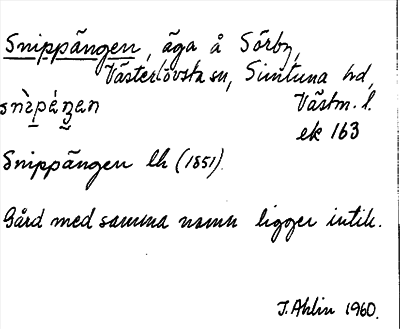 Snippängen, äga å Sörby,
Västerlövsta sn, Simtuna hd,
snìpǻŋan Västm. l.
ek 163
Snippängen lh (1851).
Gård med samma namn ligger intill.
J. Ahlin 1960.